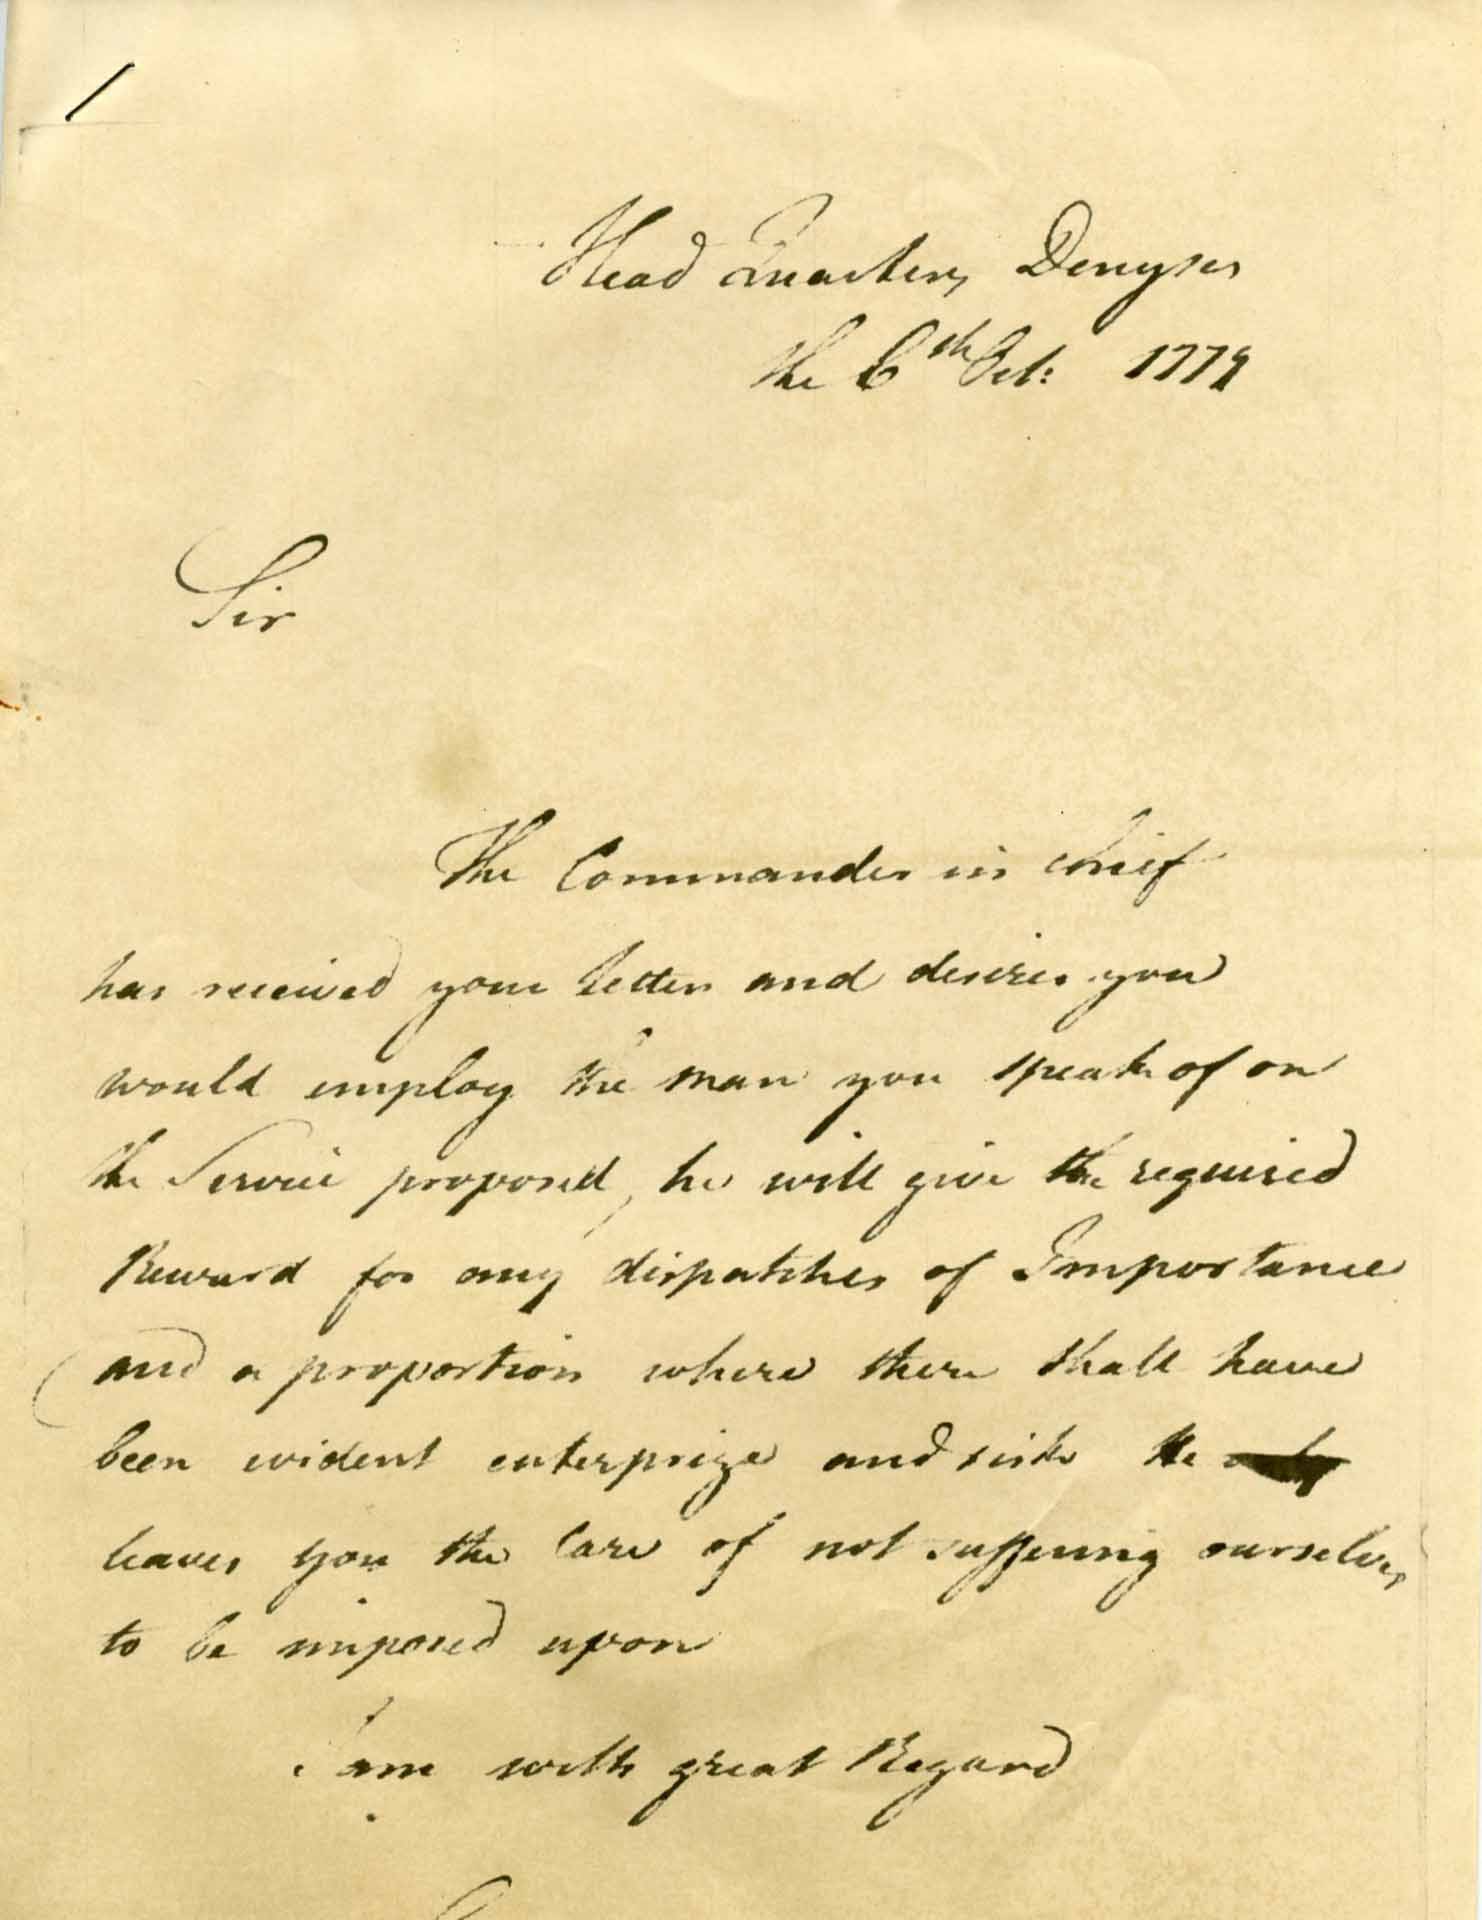 Head Quarters Denyses
the 6th Oct: 1779
Sir
The Commander in chief
has received your letter and desires you
would employ the man you speak of on
the Service proposed, he will give the required
Reward for any dispatches of Importance
and a proportion where there shall have
been evident enterprize and risk He
leaves you the Care of not suffering ourselves
to be imposed upon
I am with great Regard